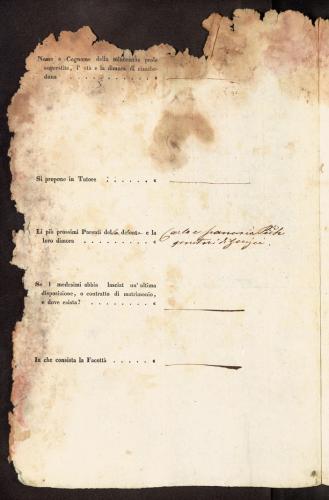 Nome e Cognome della minorenne prole
superstite, l' età e la dimora di ciasche-
duna . . . . . . . . . . . «
Si propone in Tutore . : . . . . . «
Li più prossimi Parenti del defont e la
loro dimora . . . . . . . . . «
Carlo e
genitori di
Se i medesimi abbia lasciat un' ultima
disposizione, o contratto di matrimonio,
e dove esista? . . . . . . . . «
In che consista la Facoltà . . . . . «